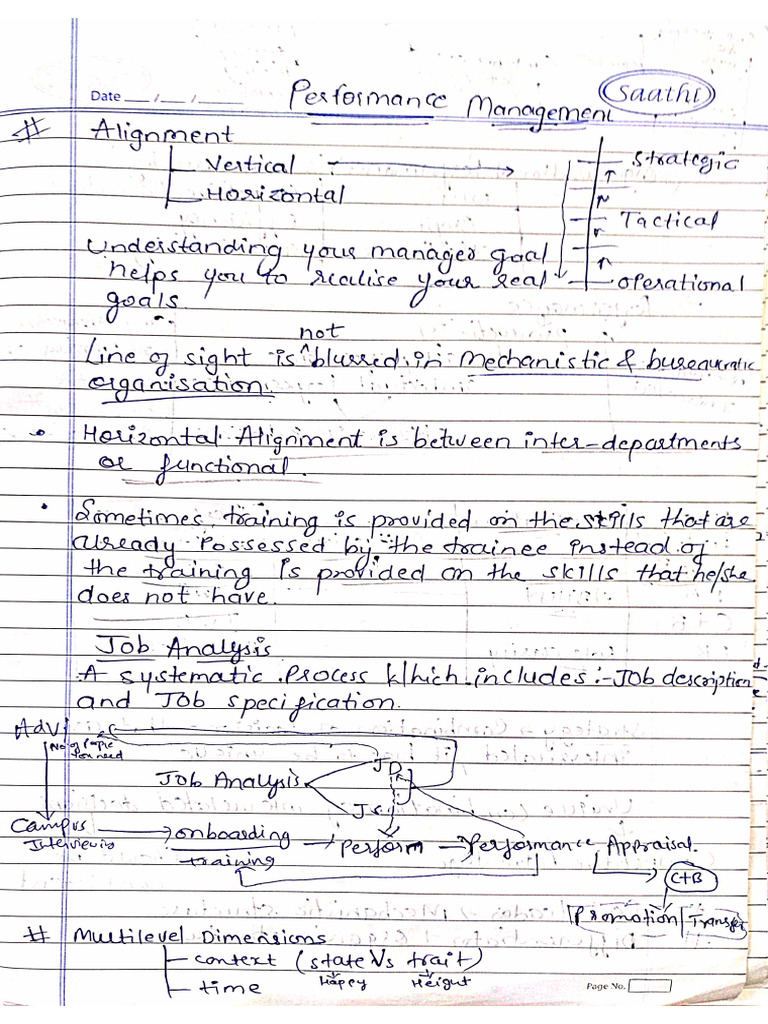 Date __/__/____
Performance Management
Saathi
# Alignment
Vertical
Horizontal
Strategic
Tactical
operational
Understanding your manages goal
helps you to realise your real
goals.
not
Line of sight is ^ blurred in Mechanistic & bureaucratic
organisation.
• Horizontal Alignment is between inter-departments
or functional.
• Sometimes, training is provided on the skills that are
already possessed by the trainee instead of
the training is provided on the skills that he/she
does not have.
Job Analysis
A systematic process which includes:- Job description
and Job specification.
Adv.
No of people
you need
JD
Job Analysis
J.S.
Campus
Interviews
onboarding
training
Perform
Performance Appraisal.
C+B
Promotion/Transfer
# Multilevel Dimensions
context (state Vs trait)
Happy Height
time
Page No.